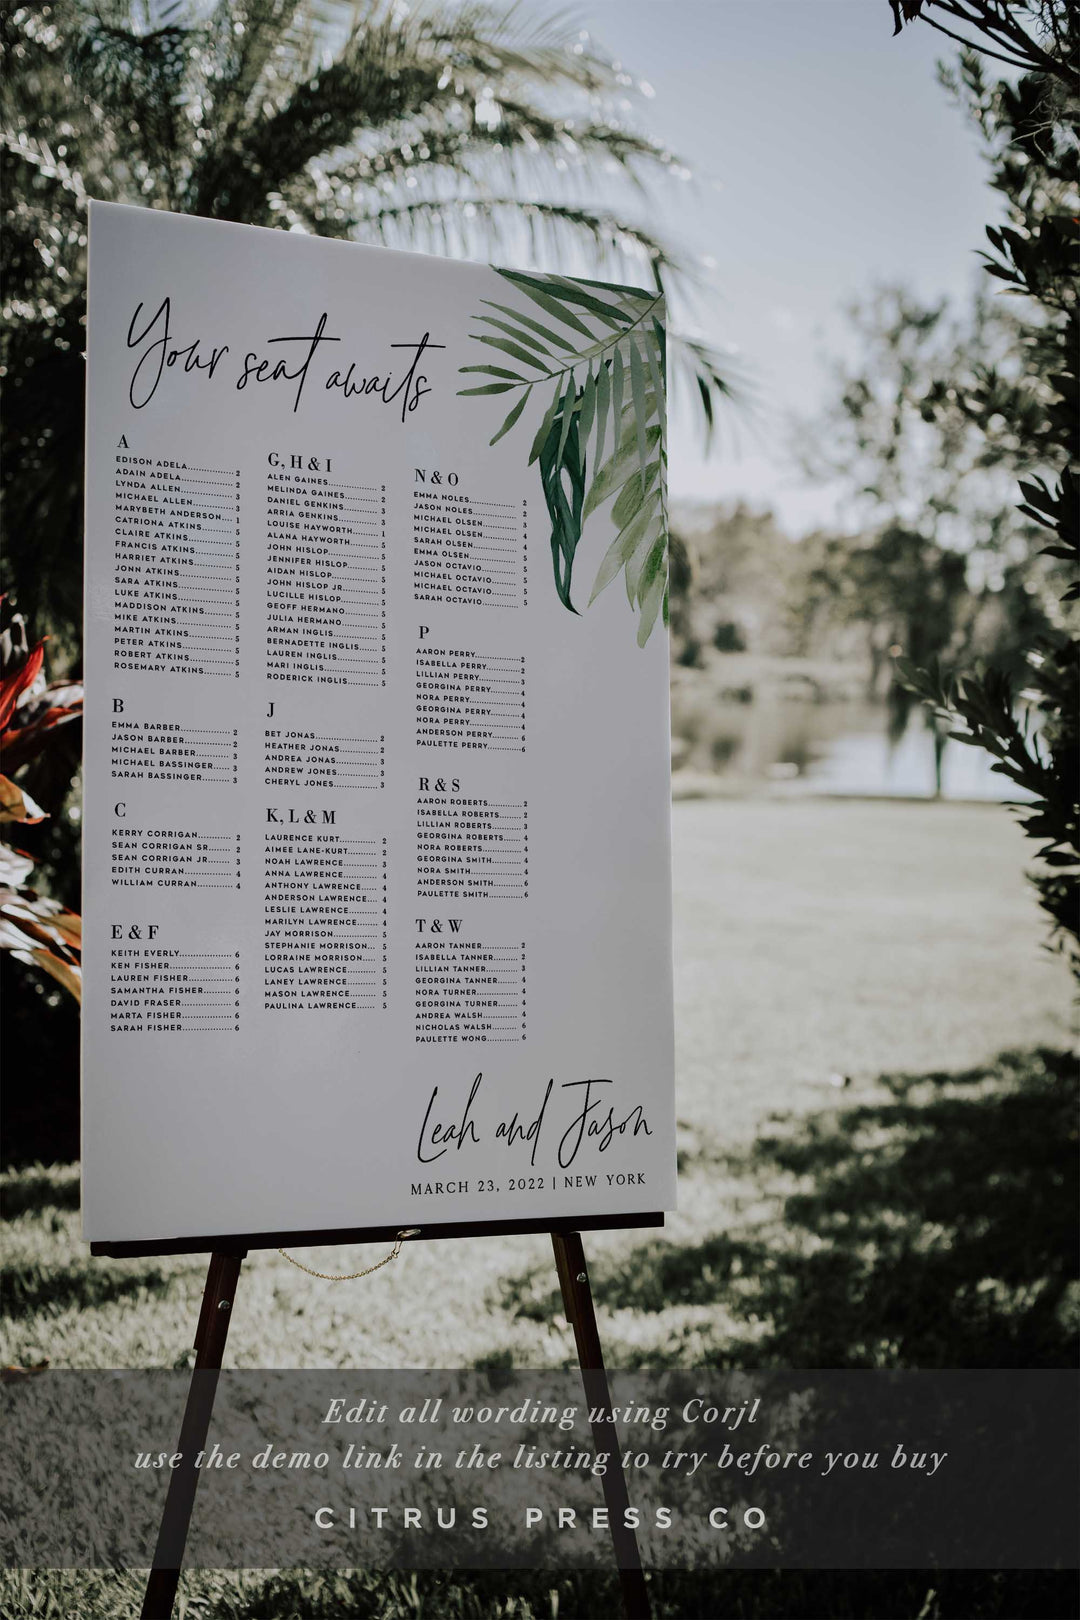 Your seat awaits
A
EDISON ADELA 2
ADAIN ADELA 2
LYNDA ALLEN 2
MICHAEL ALLEN 3
MARYBETH ANDERSON 1
CATRIONA ATKINS 5
CLAIRE ATKINS 5
FRANCIS ATKINS 5
HARRIET ATKINS 5
JONN ATKINS 5
SARA ATKINS 5
LUKE ATKINS 5
MADDISON ATKINS 5
MIKE ATKINS 5
MARTIN ATKINS 5
PETER ATKINS 5
ROBERT ATKINS 5
ROSEMARY ATKINS 5
B
EMMA BARBER 2
JASON BARBER 2
MICHAEL BARBER 3
MICHAEL BASSINGER 3
SARAH BASSINGER 3
C
KERRY CORRIGAN 2
SEAN CORRIGAN SR 2
SEAN CORRIGAN JR 3
EDITH CURRAN 4
WILLIAM CURRAN 4
E & F
KEITH EVERLY 6
KEN FISHER 6
LAUREN FISHER 6
SAMANTHA FISHER 6
DAVID FRASER 6
MARTA FISHER 6
SARAH FISHER 6
G, H & I
ALEN GAINES 2
MELINDA GAINES 2
DANIEL GENKINS 3
ARRIA GENKINS 3
LOUISE HAYWORTH 1
ALANA HAYWORTH 5
JOHN HISLOP 5
JENNIFER HISLOP 5
AIDAN HISLOP 5
JOHN HISLOP JR 5
LUCILLE HISLOP 5
GEOFF HERMANO 5
JULIA HERMANO 5
ARMAN INGLIS 5
BERNADETTE INGLIS 5
LAUREN INGLIS 5
MARI INGLIS 5
RODERICK INGLIS 5
J
BET JONAS 2
HEATHER JONAS 2
ANDREA JONAS 3
ANDREW JONES 3
CHERYL JONES 3
K, L & M
LAURENCE KURT 2
AIMEE LANE-KURT 2
NOAH LAWRENCE 3
ANNA LAWRENCE 4
ANTHONY LAWRENCE 4
ANDERSON LAWRENCE 4
LESLIE LAWRENCE 4
MARILYN LAWRENCE 4
JAY MORRISON 5
STEPHANIE MORRISON 5
LORRAINE MORRISON 5
LUCAS LAWRENCE 5
LANEY LAWRENCE 5
MASON LAWRENCE 5
PAULINA LAWRENCE 5
N & O
EMMA NOLES 2
JASON NOLES 2
MICHAEL OLSEN 3
MICHAEL OLSEN 4
SARAH OLSEN 4
EMMA OLSEN 5
JASON OCTAVIO 5
MICHAEL OCTAVIO 5
MICHAEL OCTAVIO 5
SARAH OCTAVIO 5
P
AARON PERRY 2
ISABELLA PERRY 2
LILLIAN PERRY 3
GEORGINA PERRY 4
NORA PERRY 4
GEORGINA PERRY 4
NORA PERRY 4
ANDERSON PERRY 6
PAULETTE PERRY 6
R & S
AARON ROBERTS 2
ISABELLA ROBERTS 2
LILLIAN ROBERTS 3
GEORGINA ROBERTS 4
NORA ROBERTS 4
GEORGINA SMITH 4
NORA SMITH 4
ANDERSON SMITH 6
PAULETTE SMITH 6
T & W
AARON TANNER 2
ISABELLA TANNER 2
LILLIAN TANNER 3
GEORGINA TANNER 4
NORA TURNER 4
GEORGINA TURNER 4
ANDREA WALSH 4
NICHOLAS WALSH 6
PAULETTE WONG 6
Leah and Jason
MARCH 23, 2022 | NEW YORK
Edit all wording using Corjl
use the demo link in the listing to try before you buy
CITRUS PRESS CO